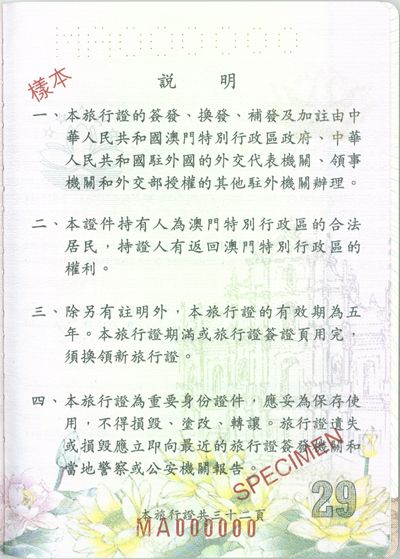 MA000000
樣本
說 明
一、本旅行證的簽發、換發、補發及加註由中
華人民共和國澳門特別行政區政府、中華
人民共和國駐外國的外交代表機關、領事
機關和外交部授權的其他駐外機關辦理。
二、本證件持有人為澳門特別行政區的合法
居民，持證人有返回澳門特別行政區的
權利。
三、除另有註明外，本旅行證的有效期為五
年。本旅行證期滿或旅行證簽證頁用完，
須換領新旅行證。
四、本旅行證為重要身份證件，應妥為保存使
用，不得損毀、塗改、轉讓。旅行證遺失
或損毀應立即向最近的旅行證簽發機關和
當地警察或公安機關報告。
SPECIMEN
29
本旅行證共三十二頁
MA000000